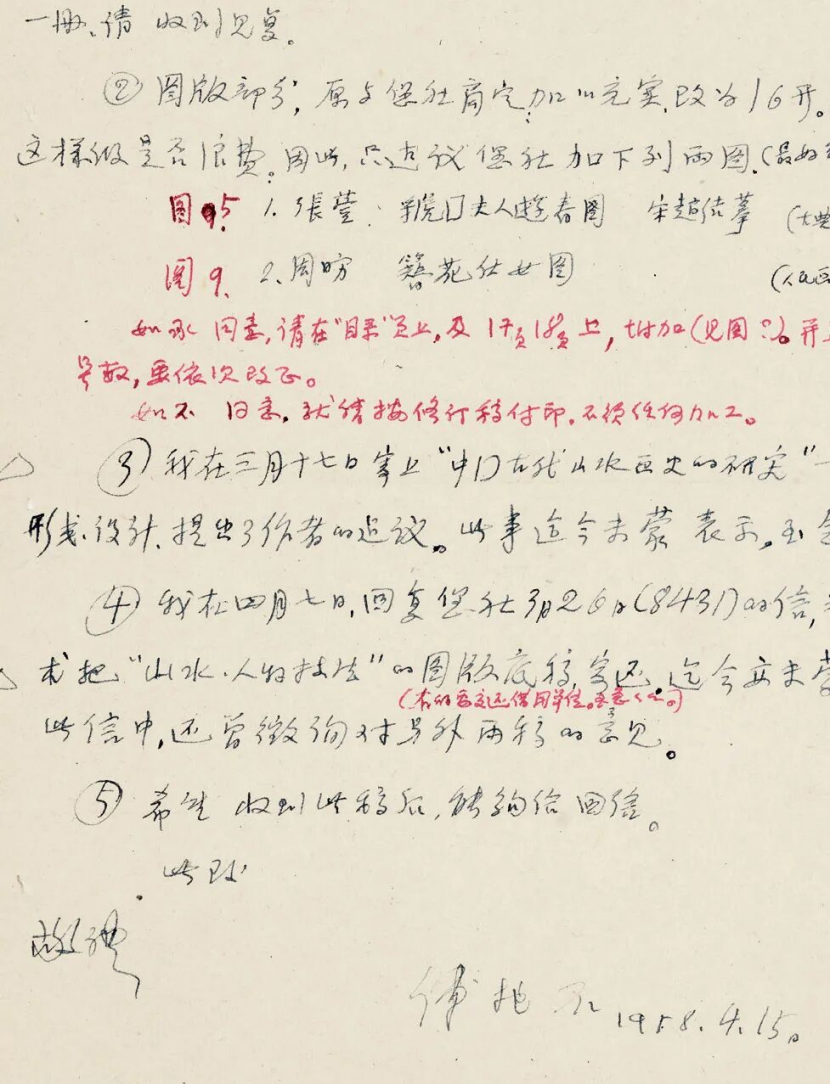 一册,请 收到见复。
② 图版部分,原与您社商定:加以充实,改为16开。
这样做是否浪费。因此,只建议您社加下列两图.(最好
图5. 1.張萱: 虢国夫人遊春图 宋趙佶摹 (大典
图9. 2.周昉 簪花仕女图 (人民
如承 同意,请在"目录"页上,及17页18页上,增加(见图 )。开
号数,要依次改正。
如不 同意,就请按修订稿付印,不须任何加工。
③ 我在三月十七日寄上"中国古代山水画史的研究"一
形式设计,提出了作者的建议。此事迄今未蒙 表示。至
④ 我在四月七日,回复您社3月26日(8431)的信,
求把"山水·人物技法"的图版底稿,寄还。迄今亦未蒙
(有的要交还借用单位。
此信中,还曾徵询对另外两稿的意见。
⑤ 希望 收到此稿后,能夠给回信。
此致
敬礼
傅抱石 1958.4.15。